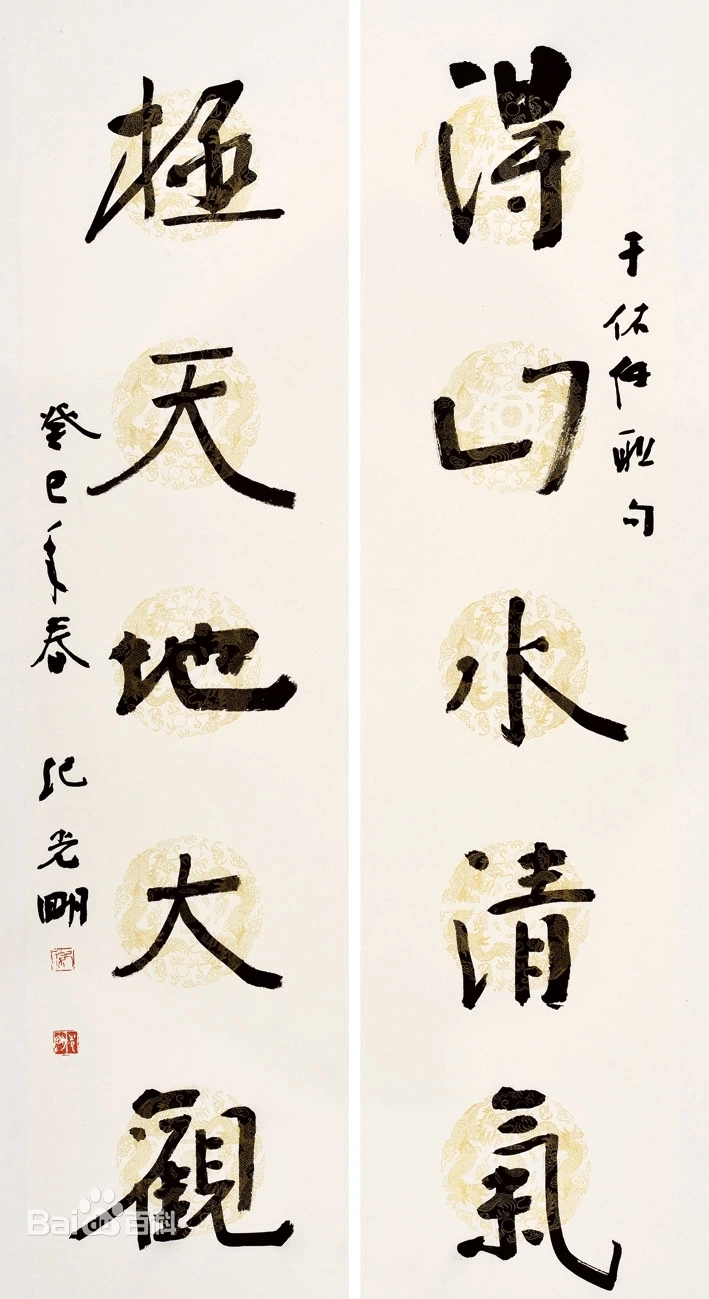 于佑任聯句
得山水清氣
極天地大觀
癸巳年春 紀光明
Bai百科